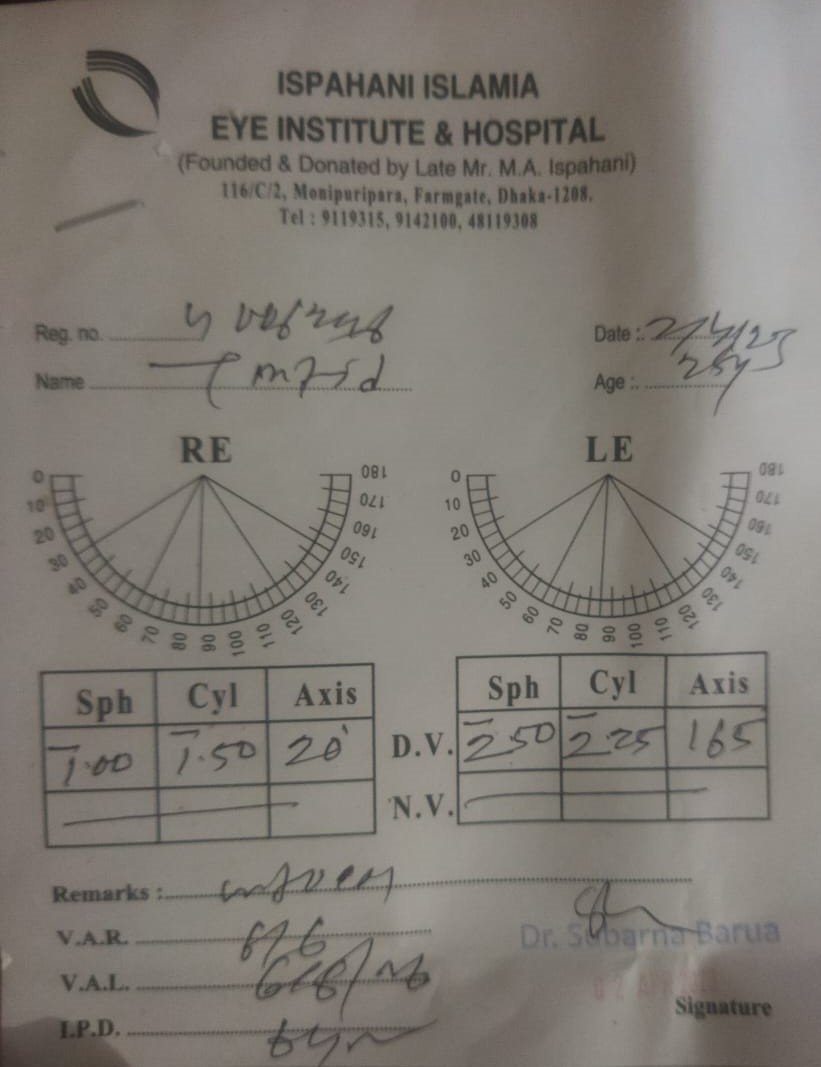 ISPAHANI ISLAMIA
EYE INSTITUTE & HOSPITAL
(Founded & Donated by Late Mr. M.A. Ispahani)
116/C/2, Monipuripara, Farmgate, Dhaka-1208.
Tel : 9119315, 9142100, 48119308
Reg. no.
Date : 2/4/23
Name
Age : 25y
RE LE
0 10 20 30 40 50 60 70 80 90 100 110 120 130 140 150 160 170 180
0 10 20 30 40 50 60 70 80 90 100 110 120 130 140 150 160 170 180
Sph Cyl Axis Sph Cyl Axis
-1.00 -1.50 20° D.V. -2.50 -2.25 165
N.V.
Remarks :
V.A.R. 6/6
Dr. Subarna Barua
V.A.L.
02 APR
Signature
I.P.D.